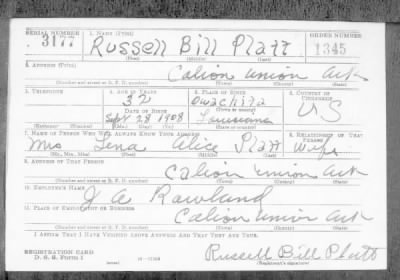 SERIAL NUMBER 1. NAME (Print) ORDER NUMBER
3177 Russell Bill Platt 1345
(First) (Middle) (Last)
2. ADDRESS (Print)
Calion Union Ark
(Number and street or R. F. D. number) (Town) (County) (State)
3. TELEPHONE 4. AGE IN YEARS 5. PLACE OF BIRTH 6. COUNTRY OF CITIZENSHIP
32 Ouachita
DATE OF BIRTH (Town or county) US
Sept 28 1908 Louisiana
(Exchange) (No.) (Mo.) (Day) (Yr.) (State or country)
7. NAME OF PERSON WHO WILL ALWAYS KNOW YOUR ADDRESS 8. RELATIONSHIP OF THAT PERSON
Mrs Lena Alice Platt Wife
(Mr., Mrs., Miss) (First) (Middle) (Last)
9. ADDRESS OF THAT PERSON
Calion Union Ark
(Number and street or R. F. D. number) (Town) (County) (State)
10. EMPLOYER'S NAME
J A Rowland
11. PLACE OF EMPLOYMENT OR BUSINESS
Calion Union Ark
(Number and street or R. F. D. number) (Town) (County) (State)
I AFFIRM THAT I HAVE VERIFIED ABOVE ANSWERS AND THAT THEY ARE TRUE.
REGISTRATION CARD Russell Bill Platt
D. S. S. Form 1 (Registrant's signature)